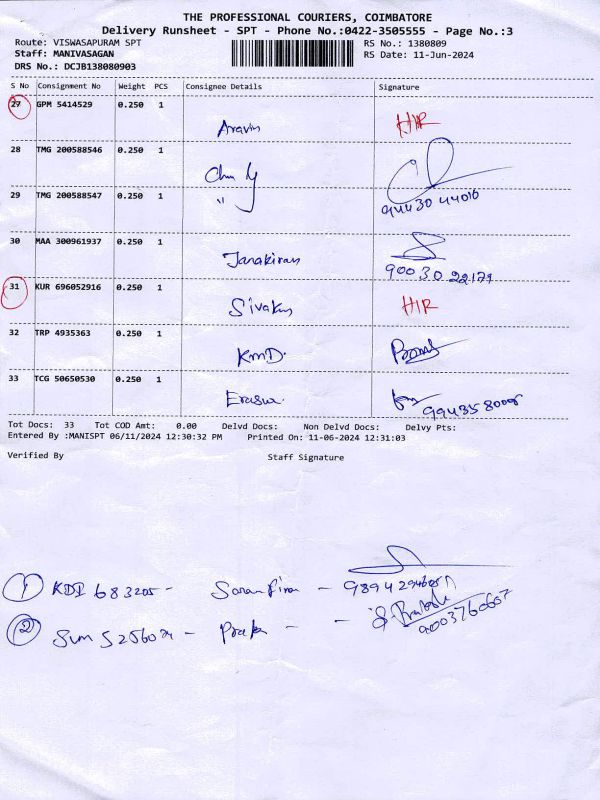 THE PROFESSIONAL COURIERS, COIMBATORE
Delivery Runsheet - SPT - Phone No.:0422-3505555 - Page No.:3
Route: VISWASAPURAM SPT RS No.: 1380809
Staff: MANIVASAGAN RS Date: 11-Jun-2024
DRS No.: DCJB138080903
S No Consignment No Weight PCS Consignee Details Signature
27 GPM 5414529 0.250 1
Aravin HIR
28 TMG 200588546 0.250 1
29 TMG 200588547 0.250 1
94430 44010
30 MAA 300961937 0.250 1
Janakiram
90030 22179
31 KUR 696052916 0.250 1
Sivakm HIR
32 TRP 4935363 0.250 1
KMD.
33 TCG 50650530 0.250 1
Tot Docs: 33 Tot COD Amt: 0.00 Delvd Docs: Non Delvd Docs: Delvy Pts:
Entered By :MANISPT 06/11/2024 12:30:32 PM Printed On: 11-06-2024 12:31:03
Verified By Staff Signature
1 KDI 683205 -
2 -
9003760607